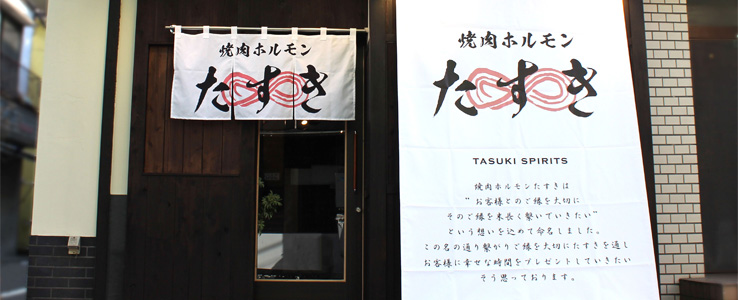 焼肉ホルモン
たすき
焼肉ホルモン
たすき
TASUKI SPIRITS
焼肉ホルモンたすきは
"お客様とのご縁を大切に
そのご縁を末長く繋いでいきたい"
という想いを込めて命名しました。
この名の通り繋がりご縁を大切にたすきを通し
お客様に幸せな時間をプレゼントしていきたい
そう思っております。